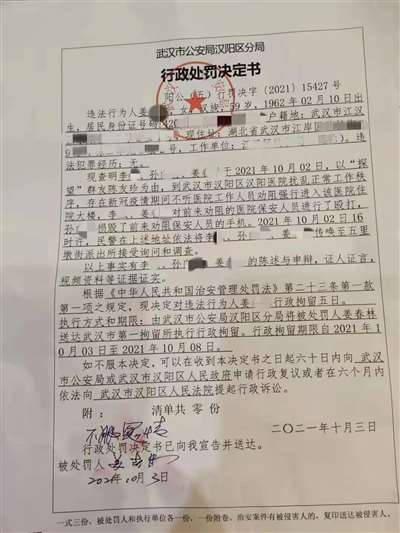 武汉市公安局汉阳区分局
行政处罚决定书
阳公(五)行罚决字〔2021〕15427号
违法行为人姜 女,汉族,59岁,1962年02月10日出
生,居民身份证号码 户籍地:武汉市江汉
现住址:湖北省武汉市江岸
工作单位: 违
法犯罪经历:无。
现查明李 、孙 、姜 于2021年10月02日,以“探
望”群友陈友珍为由,到武汉市汉阳区汉阳医院扰乱正常工作秩
序,存在新冠疫情期间不听医院工作人员劝阻强行进入该医院住
院大楼,李 、姜 对前来劝阻的医院保安人员进行了殴打,
孙 损毁了前来劝阻保安人员的手机。2021年10月02日16
时许,民警在上述地址依法将李 、孙 、姜 传唤至五里
墩街派出所接受询问和调查。
以上事实有李 、孙 的陈述与申辩,证人证言,
视频资料等证据证实。
根据《中华人民共和国治安管理处罚法》第二十三条第一款
第一项之规定,现决定对违法行为人姜 行政拘留五日。
执行方式和期限:由武汉市公安局汉阳区分局将被处罚人姜春林
送达武汉市第一拘留所执行行政拘留。行政拘留期限自2021年1
0月03日至2021年10月08日。
如不服本决定,可以在收到本决定书之日起六十日内向 武汉
市公安局或武汉市汉阳区人民政府申请行政复议或者在六个月内
依法向 武汉市汉阳区人民法院 提起行政诉讼。
附: 清单共 零 份
二〇二一年十月三日
行政处罚决定书已向我宣告并送达。
被处罚人
2021.10月3日
一式三份,被处罚人和执行单位各一份,一份附卷。治安案件有被侵害人的,复印送达被侵害人。